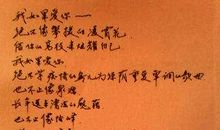 我如果爱你——
绝不像攀援的凌霄花
借你的高枝来炫耀自己
我如果爱你
绝不学痴情的鸟儿为绿荫重复单调的歌曲
也不止像泉源
长年送来清凉的慰藉
也不止像险峰